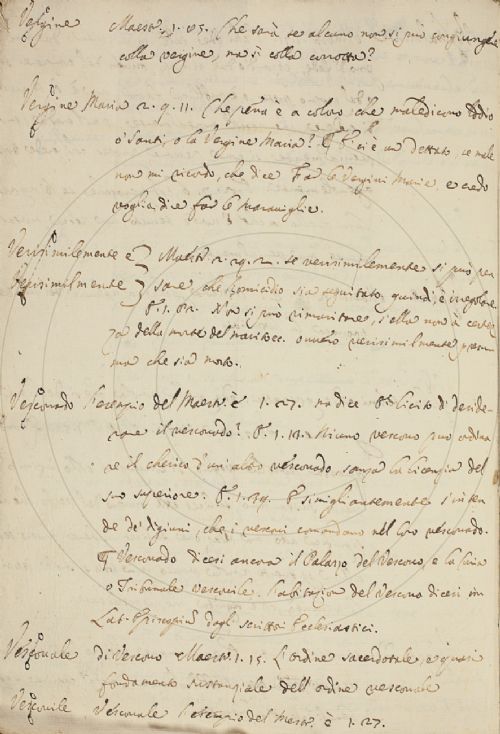 Vergine Maestr. 1. 85. Che sarà se alcuno non si può congiungere
colla vergine, ma sì colla corrotta?
Vergine Maria 2. 9. 11. Che pena è a coloro che maledicono Iddio
o' Santi, o la Vergine Maria? ¶ E ci è un Dettato, se male
non mi ricordo, che dice Far le Vergini Marie, e credo
voglia dire far le maraviglie.
Verisimilemente e Maestr. 2. 29. 2. se verisimilemente si può pen
Verisimilmente sare, che l'omicidio sia seguitato quindi, è irregolare
1. 82. Non si può rimaritare, s'ella non è certa
della morte del marito, ovvero verisimilmente presum
ma che sia morto.
Vescovado l'esempio del Maestr. è 1. 27. ma dice È licito di deside
rare il vescovado? 1. 13. Niuno vescovo può ordina
re il cherico d'un altro vescovado, sanza la licenzia del
suo superiore. 1. 39. E simigliantemente s'inten
de de' digiuni, che i vescovi comandano nel loro vescovado.
¶ Vescovado dicesi ancora il Palazzo del Vescovo, e la
o Tribunale vescovile. L'abitazion del Vescovo dicesi in
Lat. dagli scrittori Ecclesiastici.
Vescovale di Vescovo Maestr. 1. 15. L'ordine sacerdotale, è quasi
fondamento sustanziale dell'ordine vescovale
Vescovile Vescovale l'esempio del Maestr. è 1. 27.